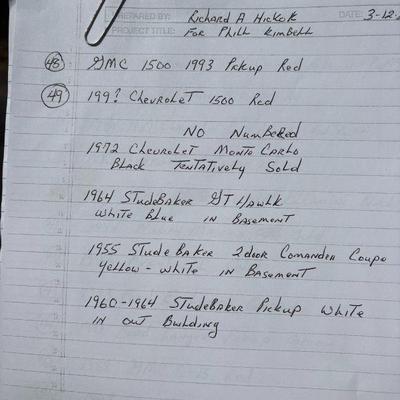 PREPARED BY: Richard A Hickok DATE: 3-12-
PROJECT TITLE: For Phill Kimbell
48 GMC 1500 1993 Pickup Red
49 199? Chevrolet 1500 Red
No Numbered
1972 Chevrolet Monte Carlo
Black Tentatively Sold
1964 Studebaker GT Hawk
White Blue in Basement
1955 Studebaker 2door Comander Coupe
Yellow - White in Basement
1960-1964 Studebaker Pickup White
in out Building